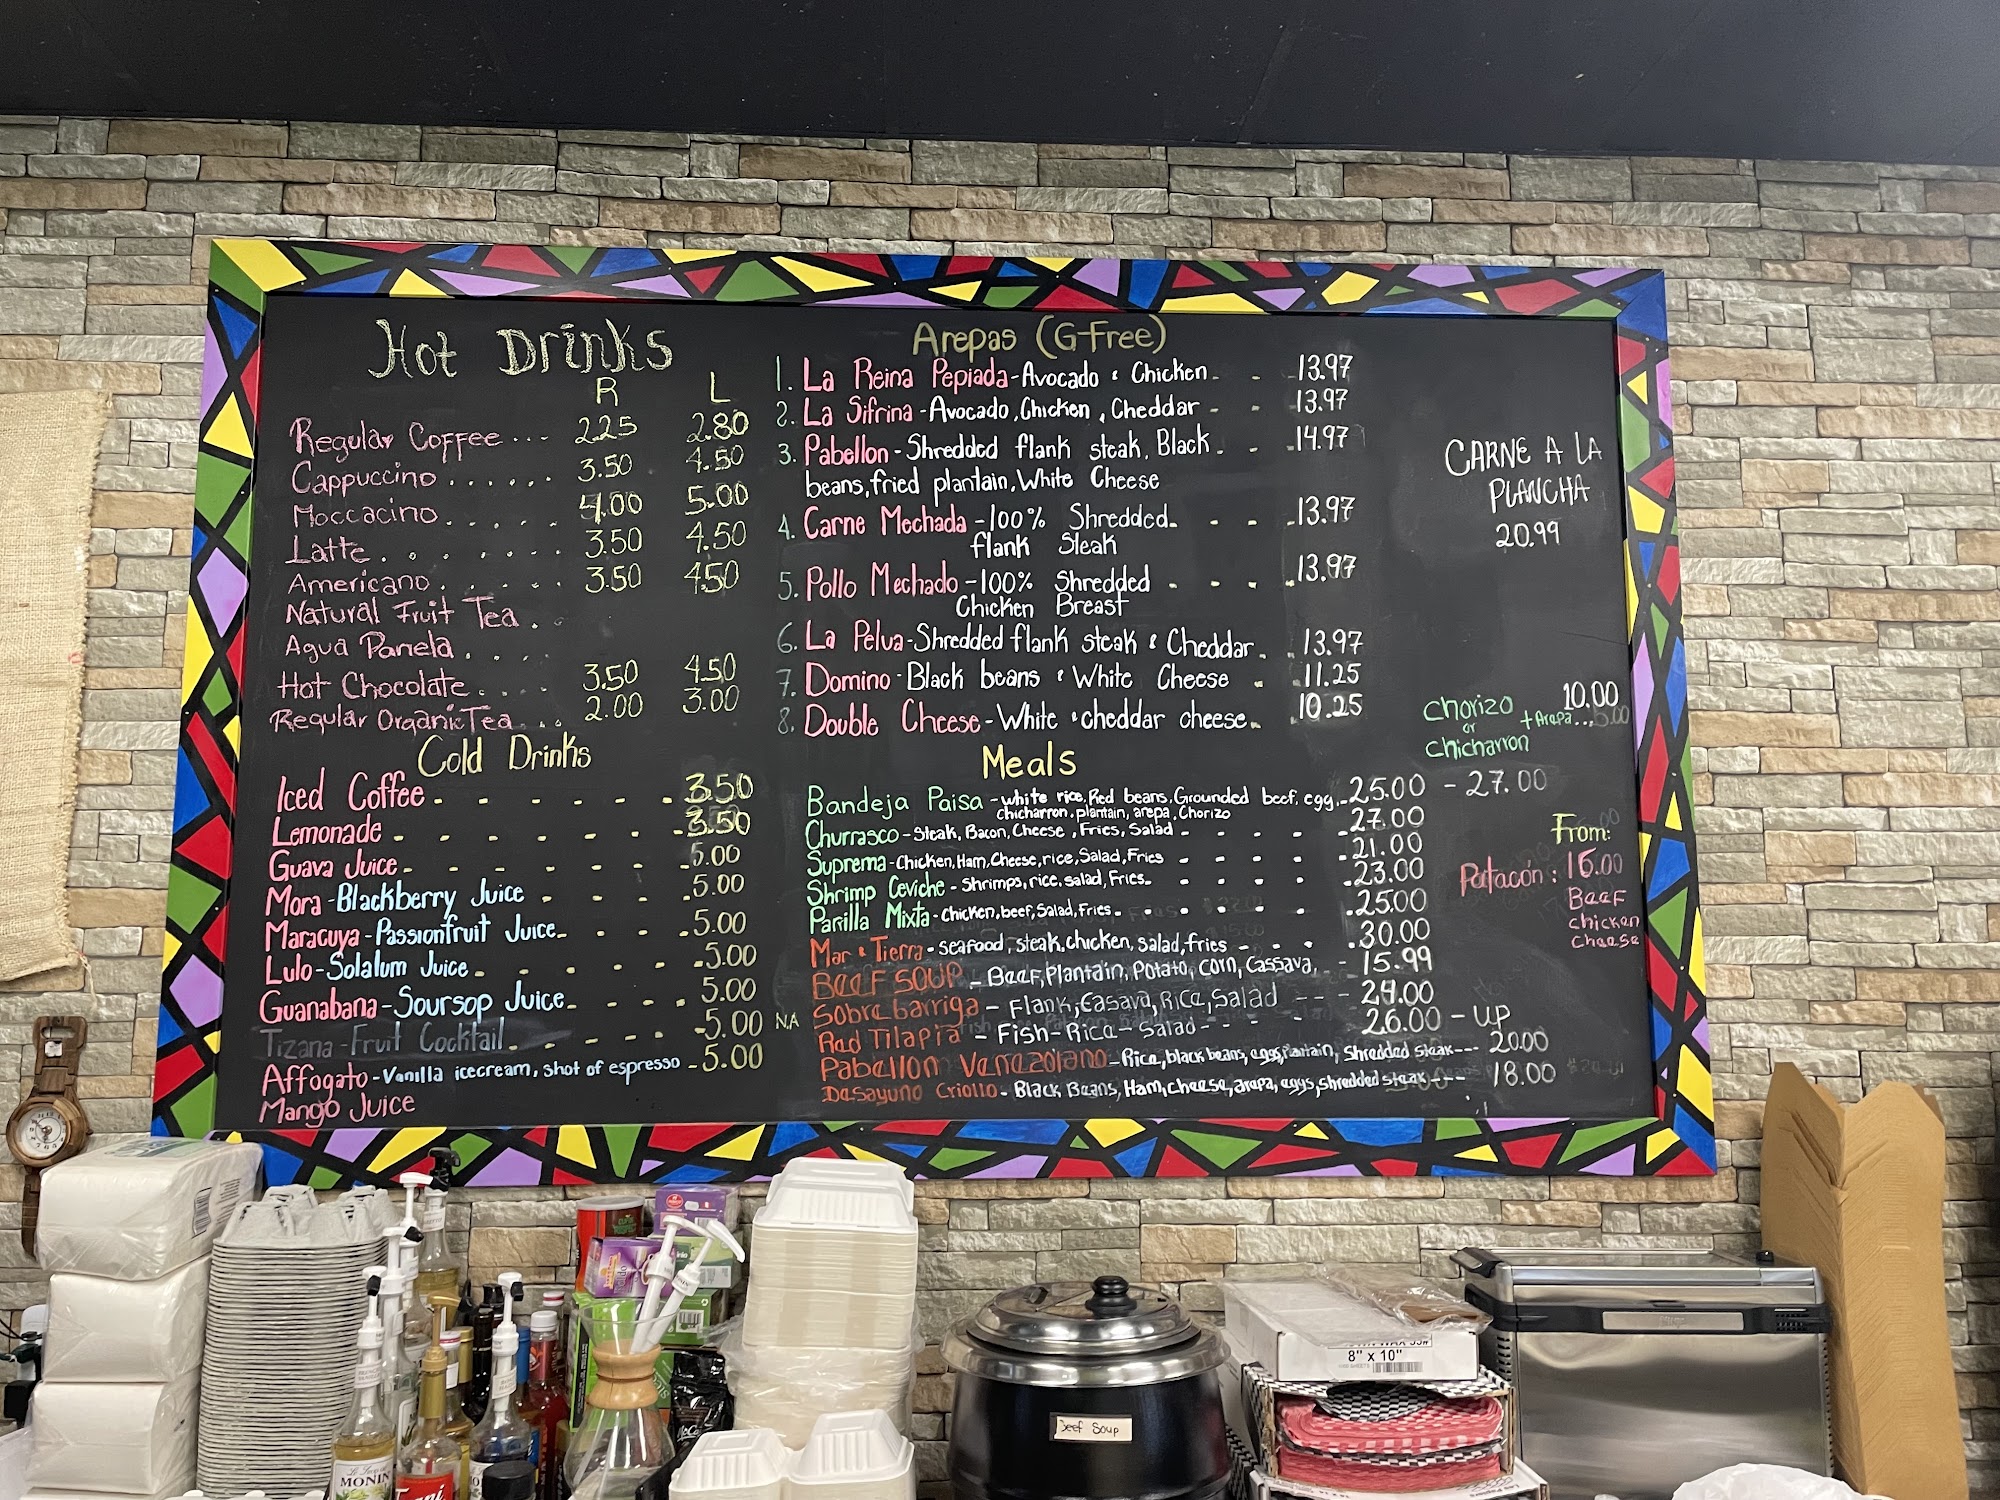 Hot Drinks
R L
Regular Coffee ... 2.25 2.80
Cappuccino ...... 3.50 4.50
Moccacino ..... 4.00 5.00
Latte ........ 3.50 4.50
Americano ...... 3.50 4.50
Natural Fruit Tea .
Agua Panela ....
Hot Chocolate .... 3.50 4.50
Regular Organic Tea ... 2.00 3.00
Cold Drinks
Iced Coffee - - - - - - 3.50
Lemonade - - - - - - 3.50
Guava Juice - - - - - - 5.00
Mora - Blackberry Juice - - - - 5.00
Maracuya - Passionfruit Juice - - - - 5.00
Lulo - Solalum Juice - - - - - 5.00
Guanabana - Soursop Juice - - - - 5.00
Tizana - Fruit Cocktail - - - - 5.00 N.A
Affogato - Vanilla icecream, shot of espresso - 5.00
Mango Juice
Arepas (G-Free)
1. La Reina Pepiada - Avocado & Chicken - - 13.97
2. La Sifrina - Avocado, Chicken, Cheddar - - 13.97
3. Pabellon - Shredded flank steak, Black - - 14.97
beans, fried plantain, White Cheese
4. Carne Mechada - 100% Shredded - - - 13.97
flank Steak
5. Pollo Mechado - 100% Shredded - - - 13.97
Chicken Breast
6. La Pelua - Shredded flank steak & Cheddar - 13.97
7. Domino - Black beans & White Cheese - 11.25
8. Double Cheese - White & cheddar cheese - 10.25
Meals
Bandeja Paisa - white rice, Red beans, Grounded beef, egg, - 25.00 - 27.00
chicharron, plantain, arepa, Chorizo
Churrasco - Steak, Bacon, Cheese, Fries, Salad - - - - 27.00
Suprema - Chicken, Ham, Cheese, rice, Salad, Fries - - - - 21.00
Shrimp Ceviche - Shrimps, rice, salad, Fries - - - - 23.00
Parilla Mixta - Chicken, beef, Salad, Fries - - - - - 25.00
Mar & Tierra - seafood, steak, chicken, salad, fries - - - 30.00
BEEF SOUP - Beef, Plantain, Potato, Corn, Cassava, - - 15.99
Sobrebarriga - Flank, Casava, Rice, Salad - - - 24.00
Red Tilapia - Fish - Rice - Salad - - - 26.00 - UP
Pabellon Venezolano - Rice, black beans, eggs, Plantain, Shredded steak --- 20.00
Desayuno Criollo - Black Beans, Ham, cheese, arepa, eggs, shredded steak --- 18.00
CARNE A LA
PLANCHA
20.99
Chorizo 10.00
or + Arepa ... 5.00
chicharron
From:
Patacón : 16.00
Beef
chicken
cheese
MONIN
8" x 10"
Beef Soup